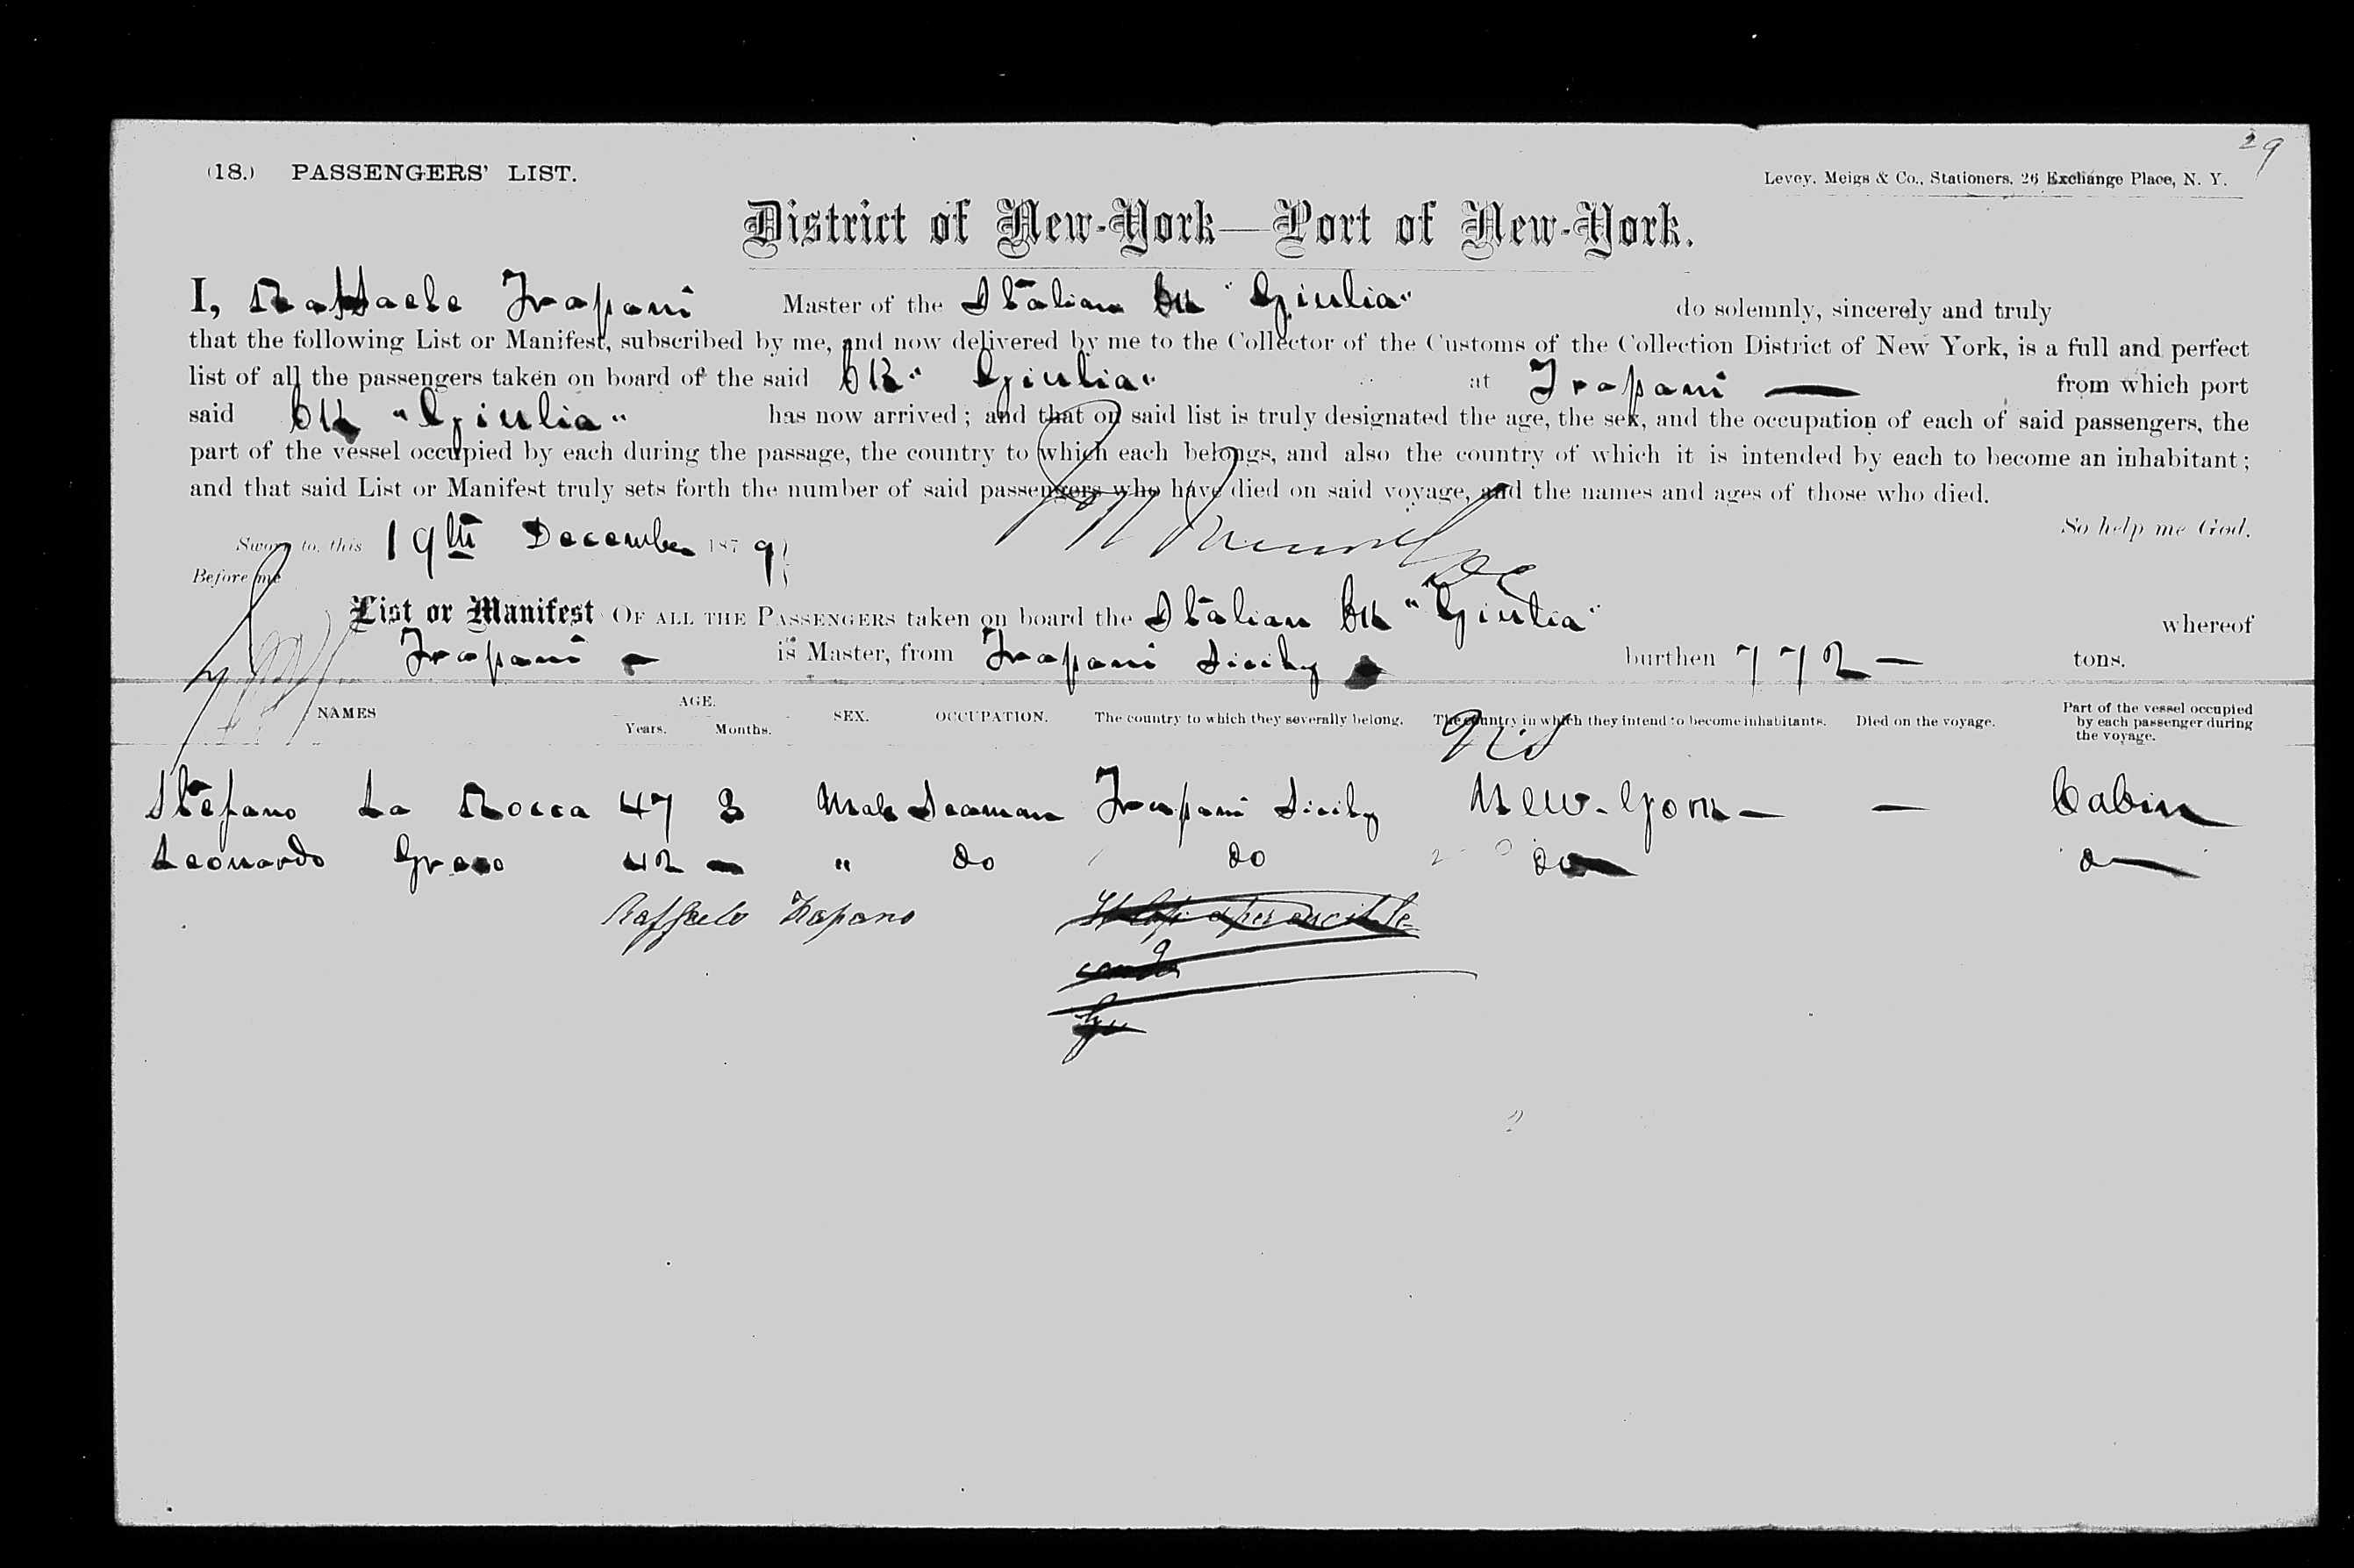 29
(18.) PASSENGERS' LIST.
Levey, Meigs & Co., Stationers, 26 Exchange Place, N. Y.
District of New-York—Port of New-York.
I, Raffaele Trapani Master of the Italian Bk "Giulia" do solemnly, sincerely and truly
that the following List or Manifest, subscribed by me, and now delivered by me to the Collector of the Customs of the Collection District of New York, is a full and perfect
list of all the passengers taken on board of the said Bk "Giulia" at Trapani — from which port
said Bk "Giulia" has now arrived; and that on said list is truly designated the age, the sex, and the occupation of each of said passengers, the
part of the vessel occupied by each during the passage, the country to which each belongs, and also the country of which it is intended by each to become an inhabitant;
and that said List or Manifest truly sets forth the number of said passengers who have died on said voyage, and the names and ages of those who died.
So help me God.
Sworn to, this 19th December 1879
Before me
List or Manifest OF ALL THE PASSENGERS taken on board the Italian Bk "Giulia" whereof
Trapani — is Master, from Trapani Sicily burthen 772 — tons.
NAMES AGE. Years. Months. SEX. OCCUPATION. The country to which they severally belong. The country in which they intend to become inhabitants. Died on the voyage. Part of the vessel occupied by each passenger during the voyage.
Stefano La Rocca 47 3 Male Seaman Trapani Sicily New-York — — Cabin
Leonardo 42 — " do do do do
Raffaele Trapano